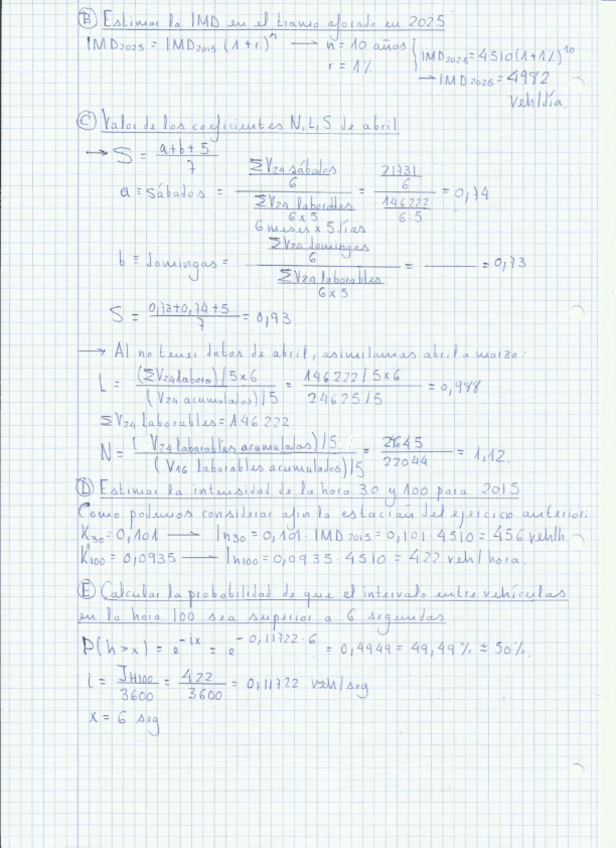 Ⓑ Estimar la IMD en el tramo aforado en 2025
IMD2025 = IMD2015 (1+r)^n → n = 10 años
r = 1%
IMD2025 = 4510(1+1%)^10
→ IMD2025 = 4982
veh/día.
Ⓒ Valor de los coeficientes N, L, S de abril
→ S = (a+b+5)/7
a = sábados = (ΣV24 sábados/6)/(ΣV24 laborables/6x5) = (21731/6)/(146222/6·5) = 0,74
6 meses x 5 días
b = domingos = (ΣV24 domingos/6)/(ΣV24 laborables/6x5) = —— = 0,73
S = (0,73+0,74+5)/7 = 0,93.
→ Al no tener datos de abril, asimilamos abril a marzo:
L = (ΣV24 labora)/5x6 / (V24 acumulados)/5 = 146222/5x6 / 24625/5 = 0,988
ΣV24 laborables = 146222
N = (V24 laborables acumulados)/5 / (V16 laborables acumulados)/5 = 24645/22044 = 1,12.
Ⓓ Estimar la intensidad de la hora 30 y 100 para 2015
Como podemos considerar afín la estación del ejercicio anterior:
K30 = 0,101 → In30 = 0,101 · IMD2015 = 0,101 · 4510 = 456 veh/h
K100 = 0,0935 → In100 = 0,0935 · 4510 = 422 veh/hora.
Ⓔ Calcular la probabilidad de que el intervalo entre vehículos
en la hora 100 sea superior a 6 segundos
P(h>x) = e^-ix = e^-0,11722·6 = 0,4949 = 49,49% ≈ 50%.
i = IH100/3600 = 422/3600 = 0,11722 veh/seg
x = 6 seg